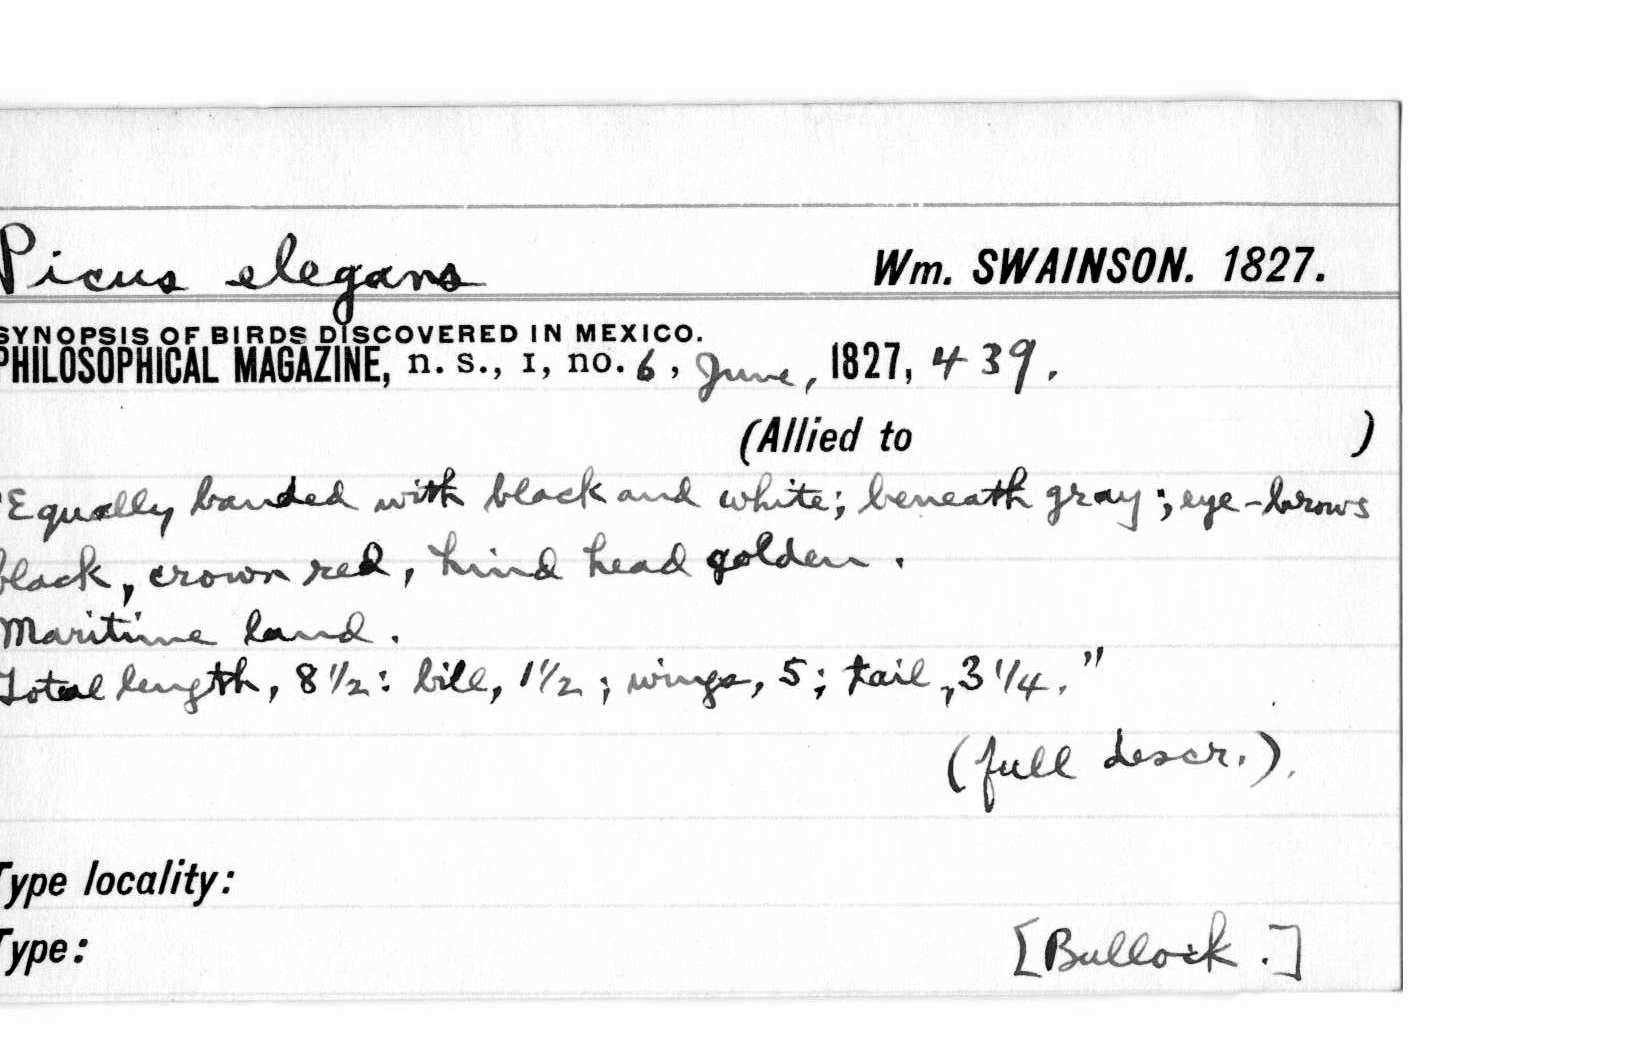 Picus elegans Wm. SWAINSON. 1827.
SYNOPSIS OF BIRDS DISCOVERED IN MEXICO.
PHILOSOPHICAL MAGAZINE, n. s., I, no. 6, June, 1827, 439.
(Allied to )
"Equally banded with black and white; beneath gray; eye-brows
black, crown red, hind head golden.
Maritime land.
Total length, 8 1/2: bill, 1 1/2; wings, 5; tail, 3 1/4."
(full descr.).
Type locality:
Type: [Bullock.]